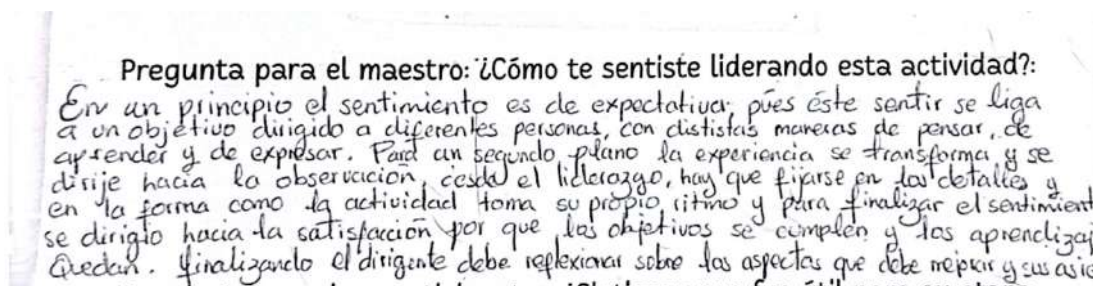 Pregunta para el maestro: ¿Cómo te sentiste liderando esta actividad?:
En un principio el sentimiento es de expectativa, pues éste sentir se liga
a un objetivo dirigido a diferentes personas, con dististas maneras de pensar, de
aprender y de expresar. Para un segundo plano la experiencia se transforma y se
dirije hacia la observación, desde el liderazgo, hay que fijarse en los detalles y
en la forma como la actividad toma su propio ritmo y para finalizar el sentimient
se dirigio hacia la satisfacción por que los objetivos se cumplen y los aprendizaj
Quedan. finalizando el dirigente debe reflexionar sobre los aspectos que debe mejorar y sus